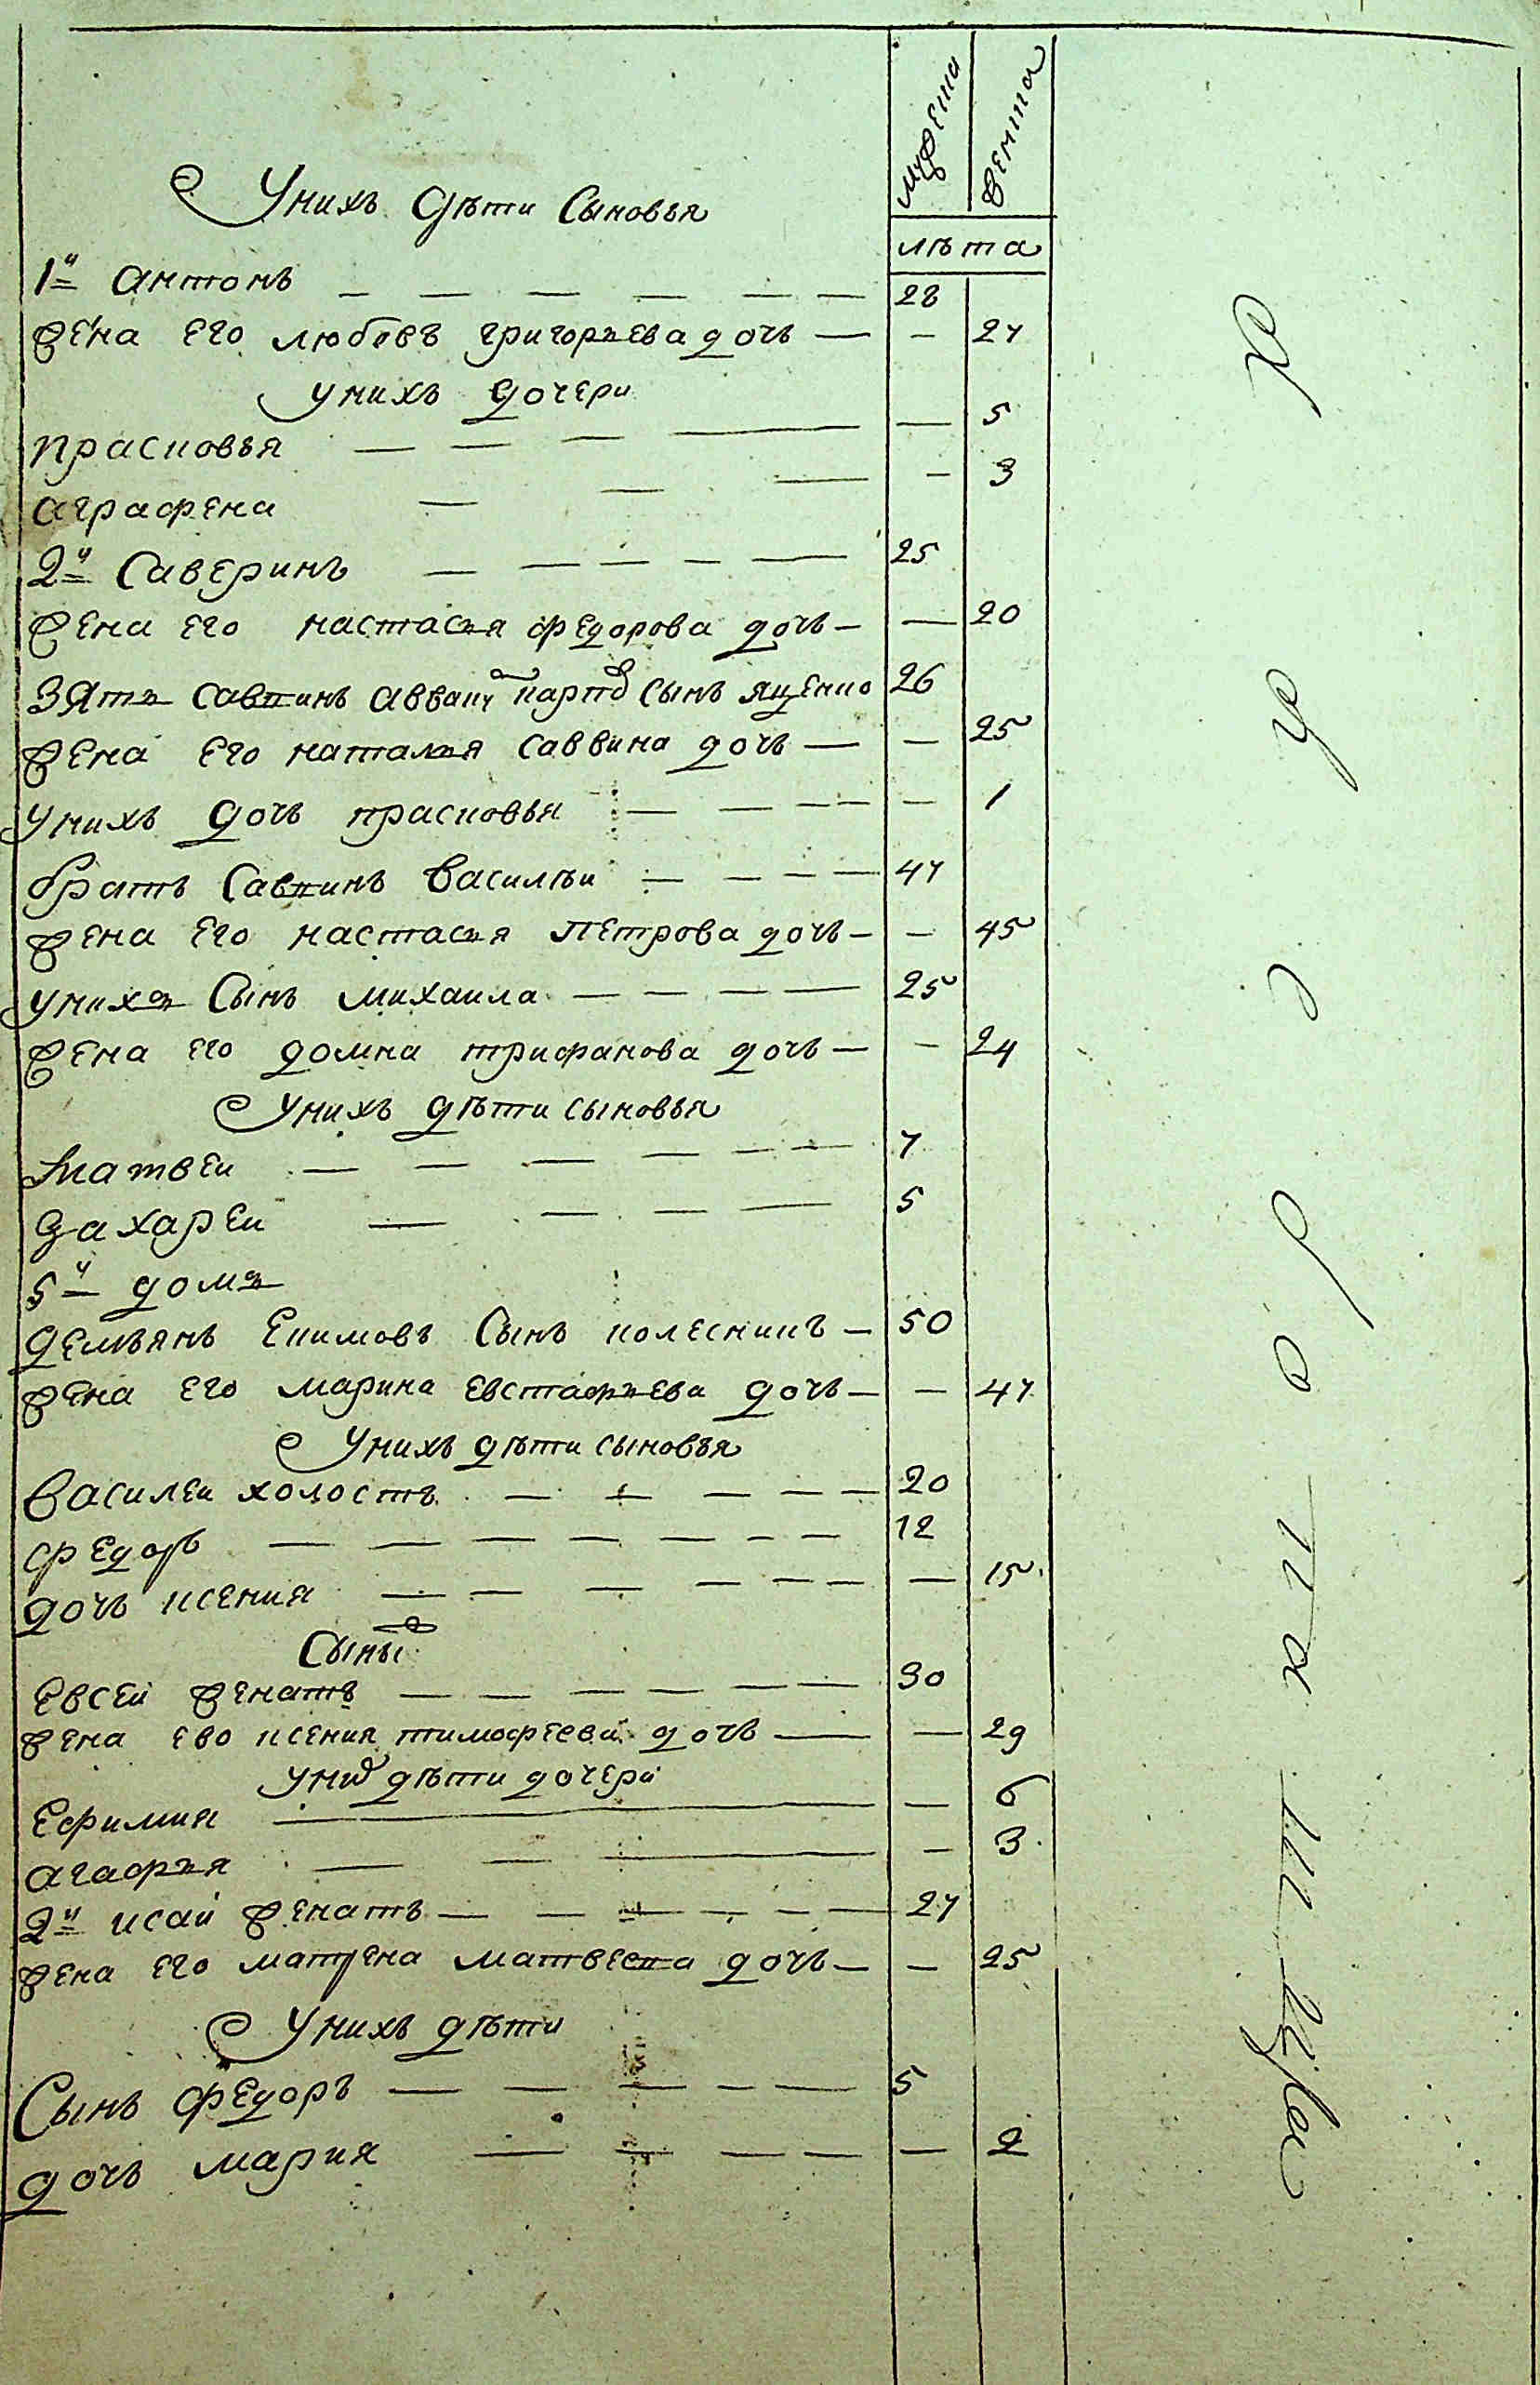 мужеска женска
лѣта
Унихъ дѣти Сыновья
1й антонъ — — — — — — 28
жена его любовъ григорьева дочь — — 27
унихъ дочери
прасковья — — — — — 5
аграфена — — — — 3
2й Саверинъ — — — — — 25
жена его настасья федорова дочь — — 20
Зять Саввинъ карпов Сынъ яценко 26
жена его наталья саввина дочь — — 25
унихъ дочь прасковья — — — — — 1
братъ Саввинъ Василѣи — — — — 47
жена его настасья петрова дочь — — 45
унихъ Сынъ михаила — — — — 25
жена его домна трифанова дочь — — 24
Унихъ дѣти сыновья
матвеи — — — — — — 7
захареи — — — — — 5
5й домъ
демьянъ Екимовъ Сынъ колесникъ — 50
жена его марина евстафьева дочь — — 47
Унихъ дѣти сыновья
Василеи холостъ — — — — — 20
федоръ — — — — — — — 12
дочь ксения — — — — — — — 15
Сыны
Евсеи женатъ — — — — — — 30
жена ево ксения тимофеева дочь — — 29
уних дѣти дочери
Ефимия — — 6
агафья — — — — 3
2й исаи женатъ — — — — — — 27
жена его матрена матвеева дочь — — 25
Унихъ дѣти
Сынъ федоръ — — — — — 5
дочь мария — — — — — 2